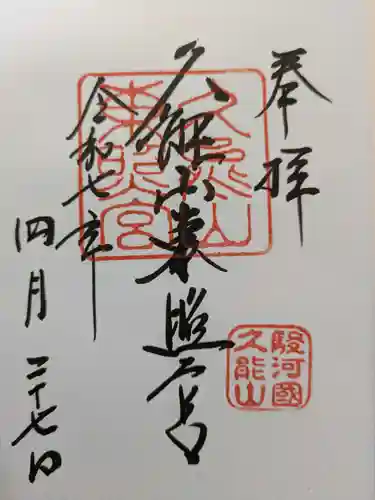 奉拝
久能山東照宮
令和七年
四月二十七日
久能山
東照宮
駿河國
久能山